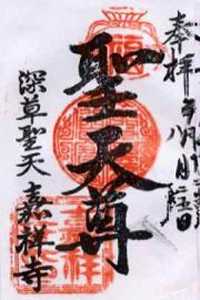 奉拝
年八月二五日
聖天尊
深草聖天 嘉祥寺
嘉祥